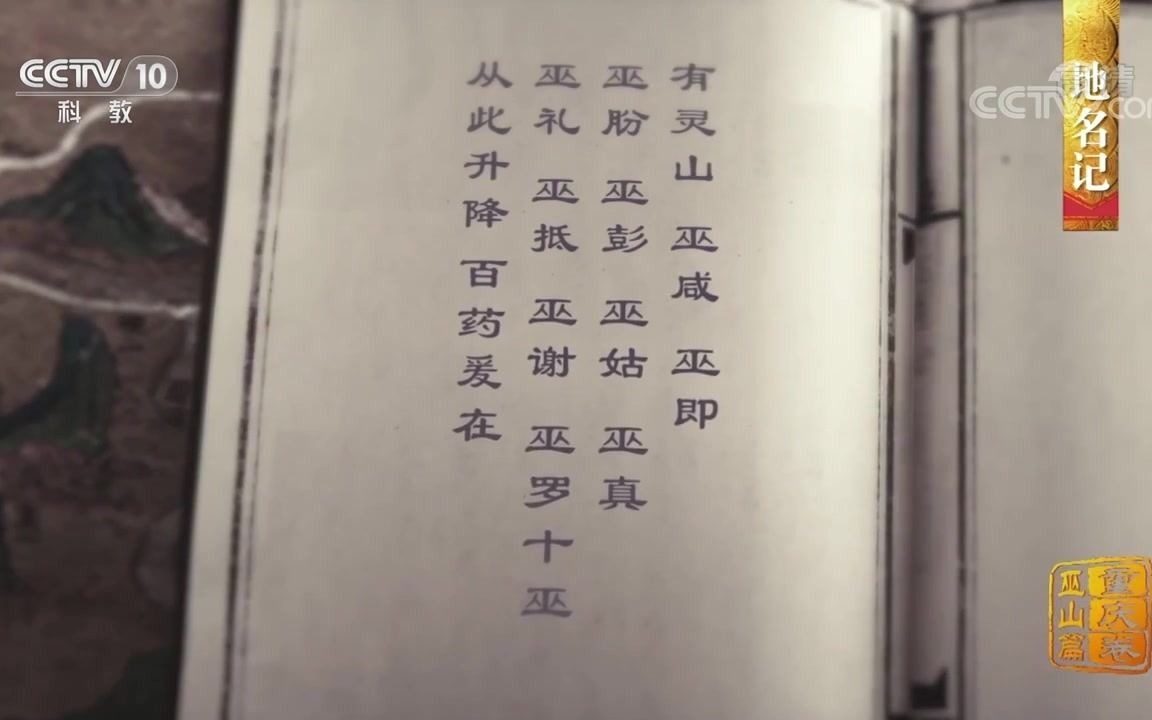 CCTV 10
科教
有灵山 巫咸 巫即
巫肦 巫彭 巫姑 巫真
巫礼 巫抵 巫谢 巫罗十巫
从此升降百药爰在
地名记
CCTV.com
高清
重庆卷
巫山篇